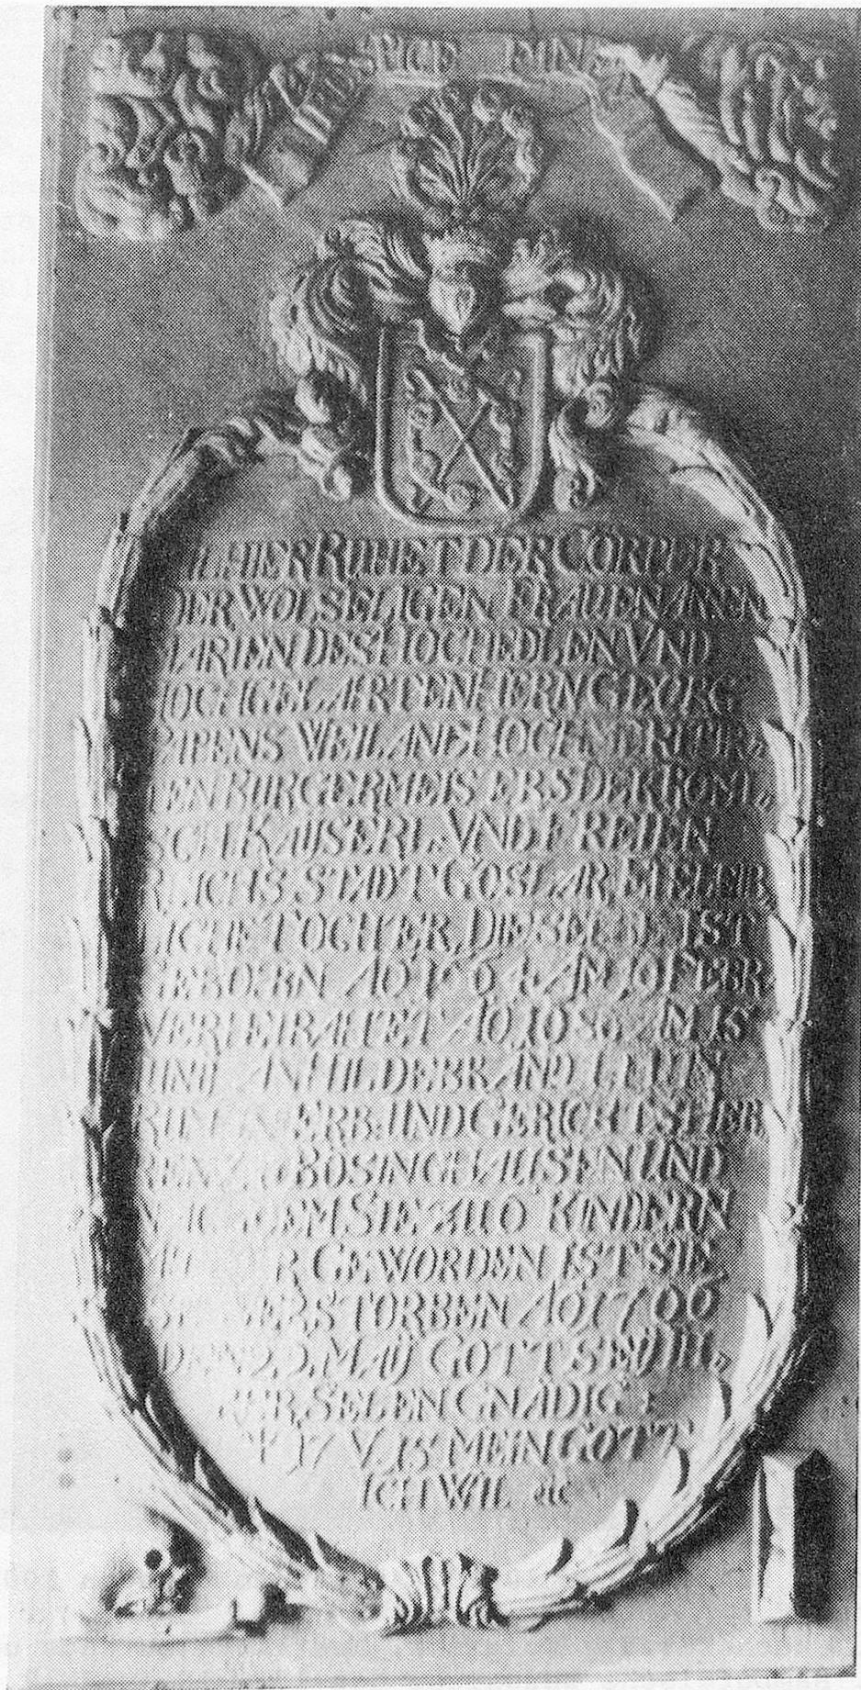 RESPICE FINEM
ALHIER RUHET DER CÖRPER
DER WOLSELIGEN FRAUEN ANNEN
MARIEN DES HOCHEDLEN VND
HOCHGELARTEN HERN GEORG
WEILAND HOCH
TEN BURGERMEISTERS DER RÖMI„
SCH KAUSERL VND FREIEN
REICHS STADT GOSLAR EHELEIB„
LICHE TOCHTER. DIESELBE IST
GEBOERN AO 16 AM FEBR
VERHEIRATET AO 1686 15
IUNII AN HILDEBRAND
ERB UND GERICHTS HER
REN ZU BÖSINGHAUSEN UND
WELCHEM SIE ZU 10 KINDERN
R GEWORDEN IST SIE
VERSTORBEN AO 1706
DEN MAIJ GOTT SEIJ IH„
RER SELEN GNÄDIG
17 V. 15 MEIN GOTT
ICH WIL &c